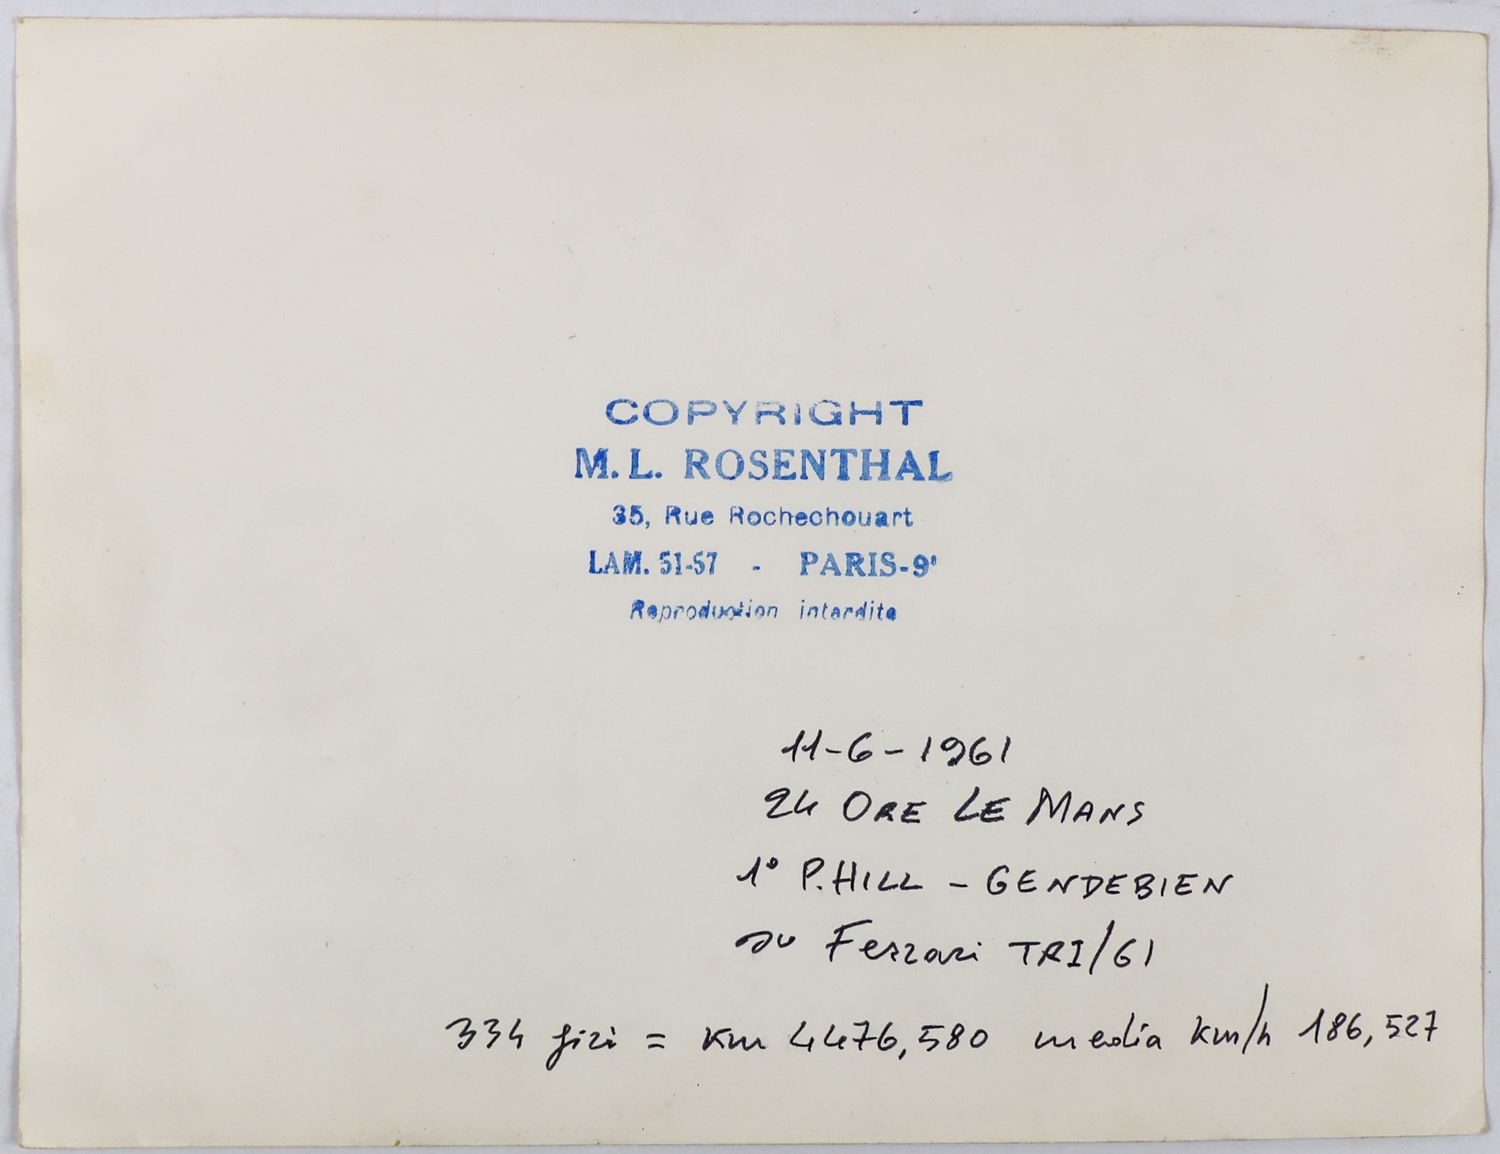 COPYRIGHT
M. L. ROSENTHAL
35, Rue Rochechouart
LAM. 51-57 - PARIS-9'
Reproduction interdite
11-6-1961
24 ORE LE MANS
1° P. HILL - GENDEBIEN
su Ferrari TRI/61
334 giri = Km 4476,580 media Km/h 186,527